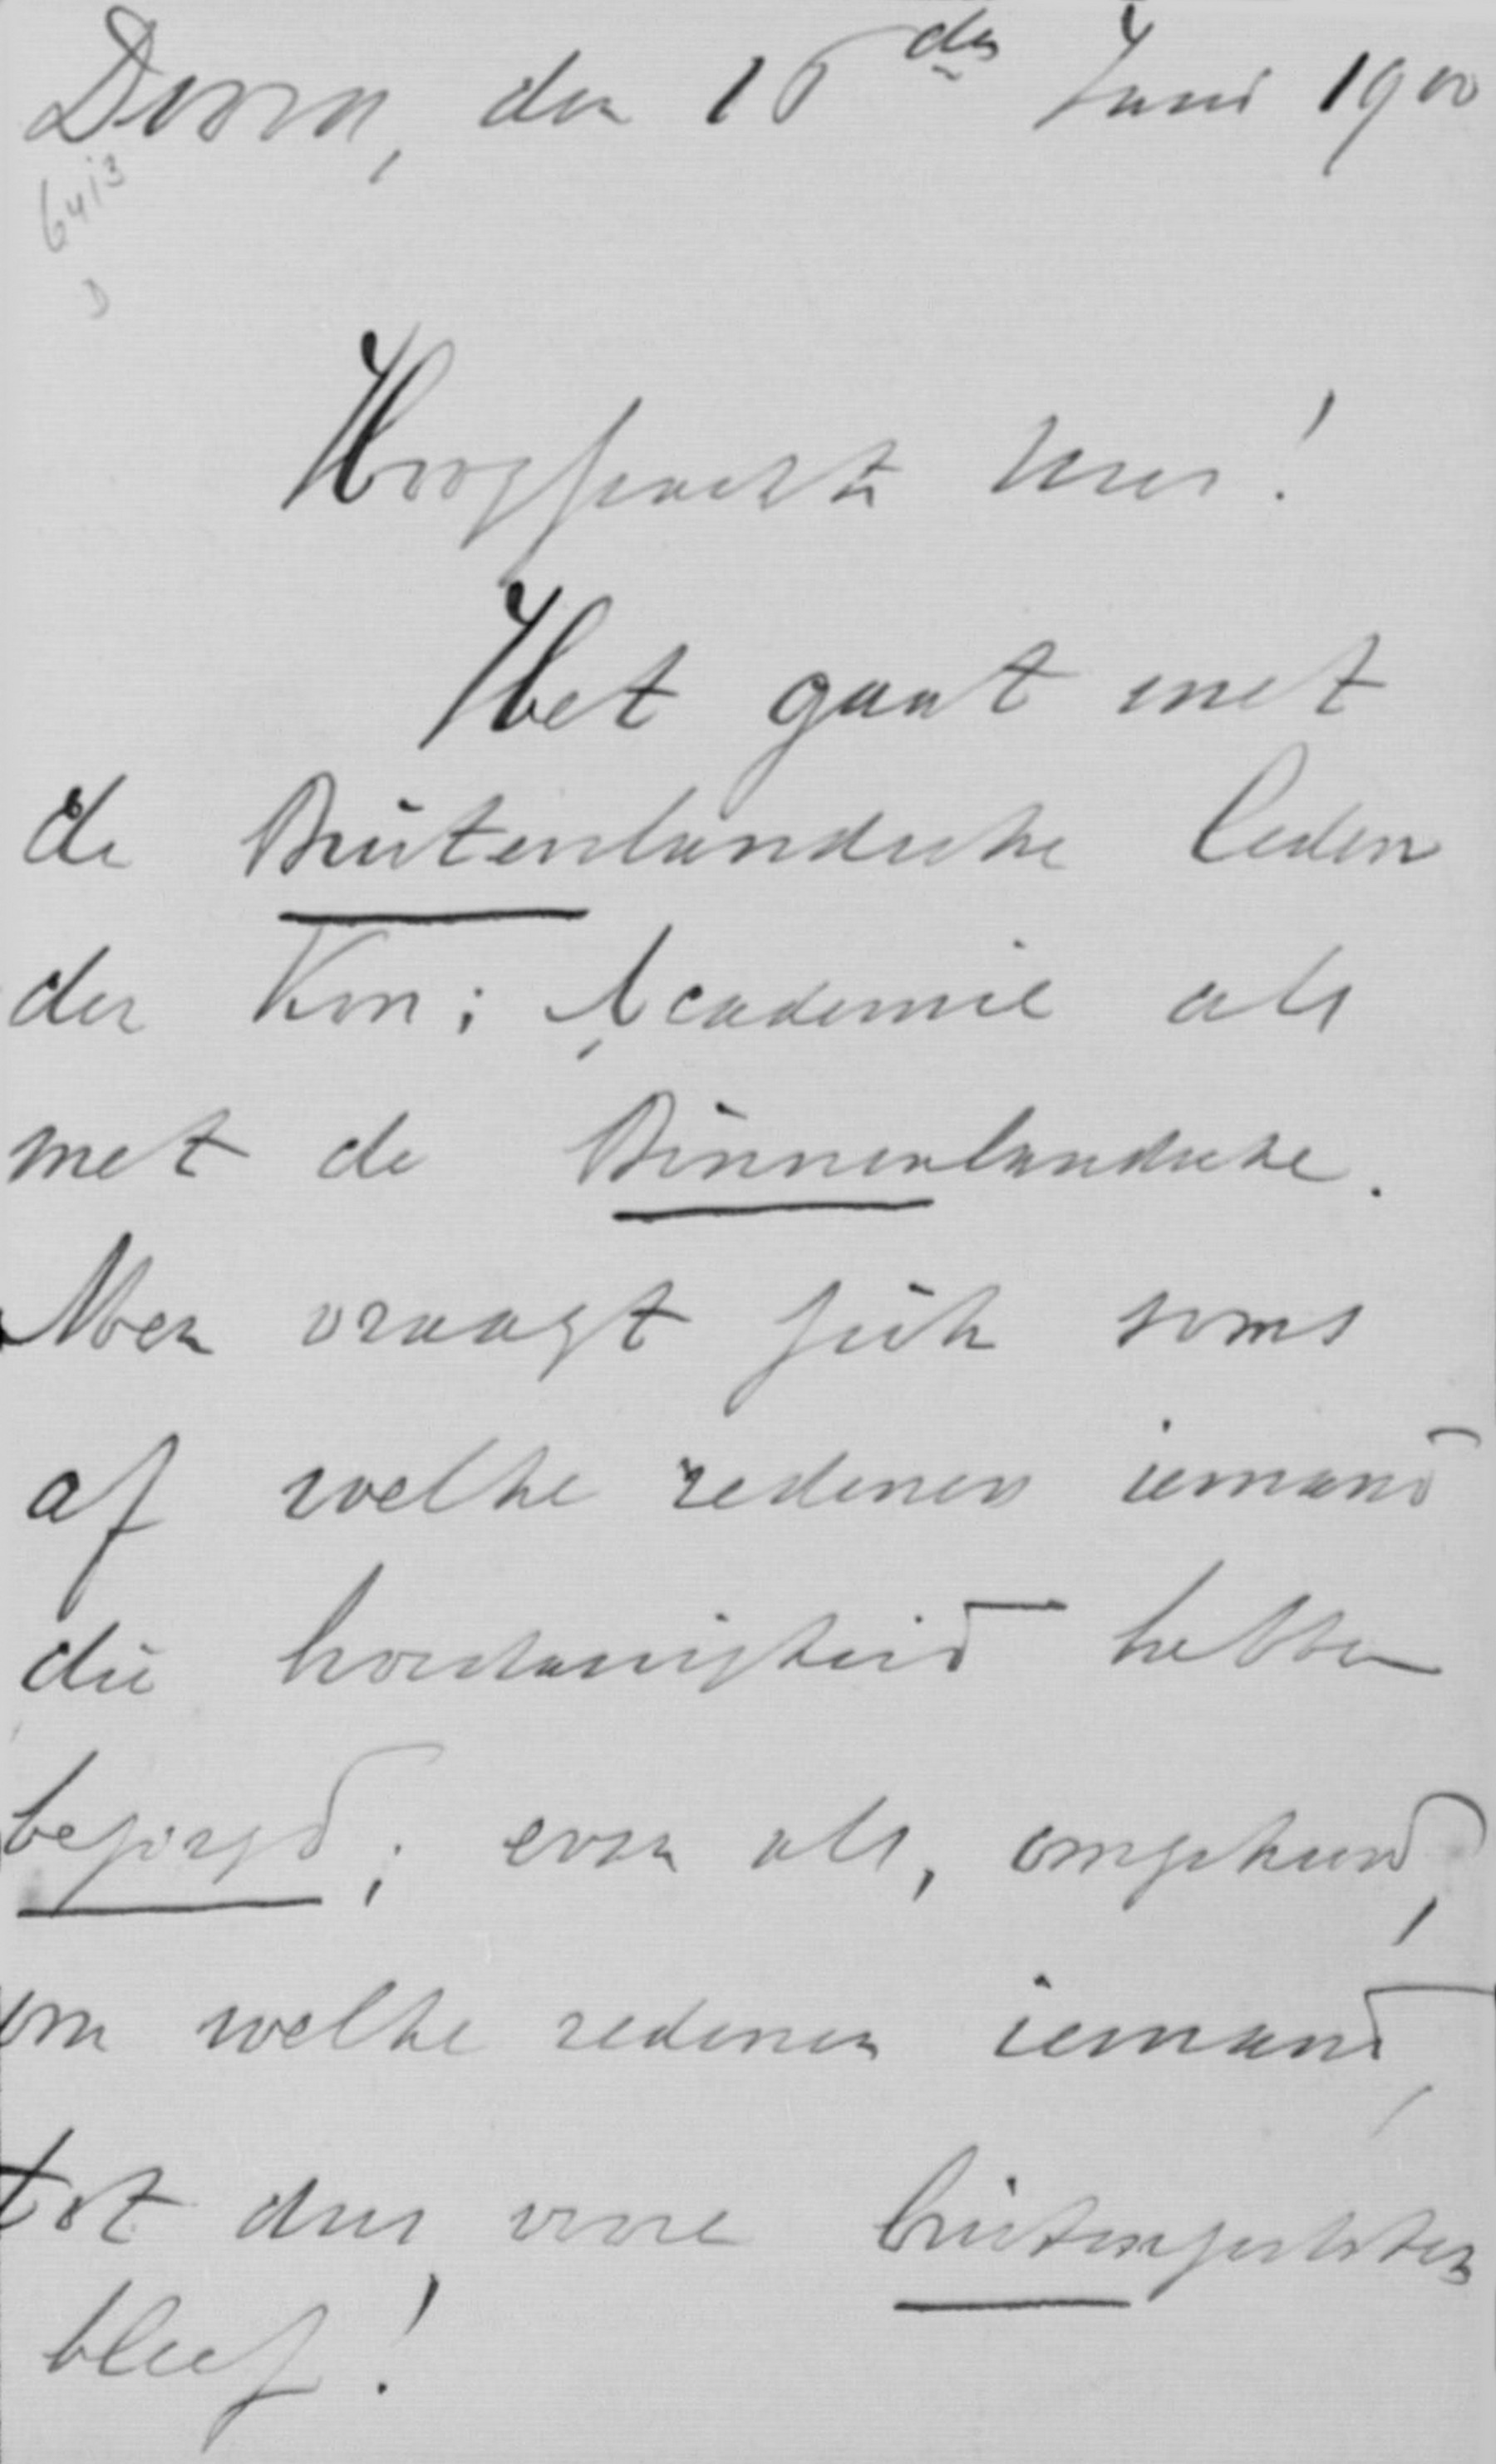 Doorn, den 16den Juni 1900
6413
D
Hooggeachte Heer!
Het gaat met
de Buitenlandsche leden
der Kon: Academie als
met de Binnenlandsche.
Men vraagt zich soms
af welke redenen iemand
die hoedanigheid hebben
bezorgd; even als, omgekeerd,
om welke redenen iemand,
tot dus verre buitengesloten
bleef!